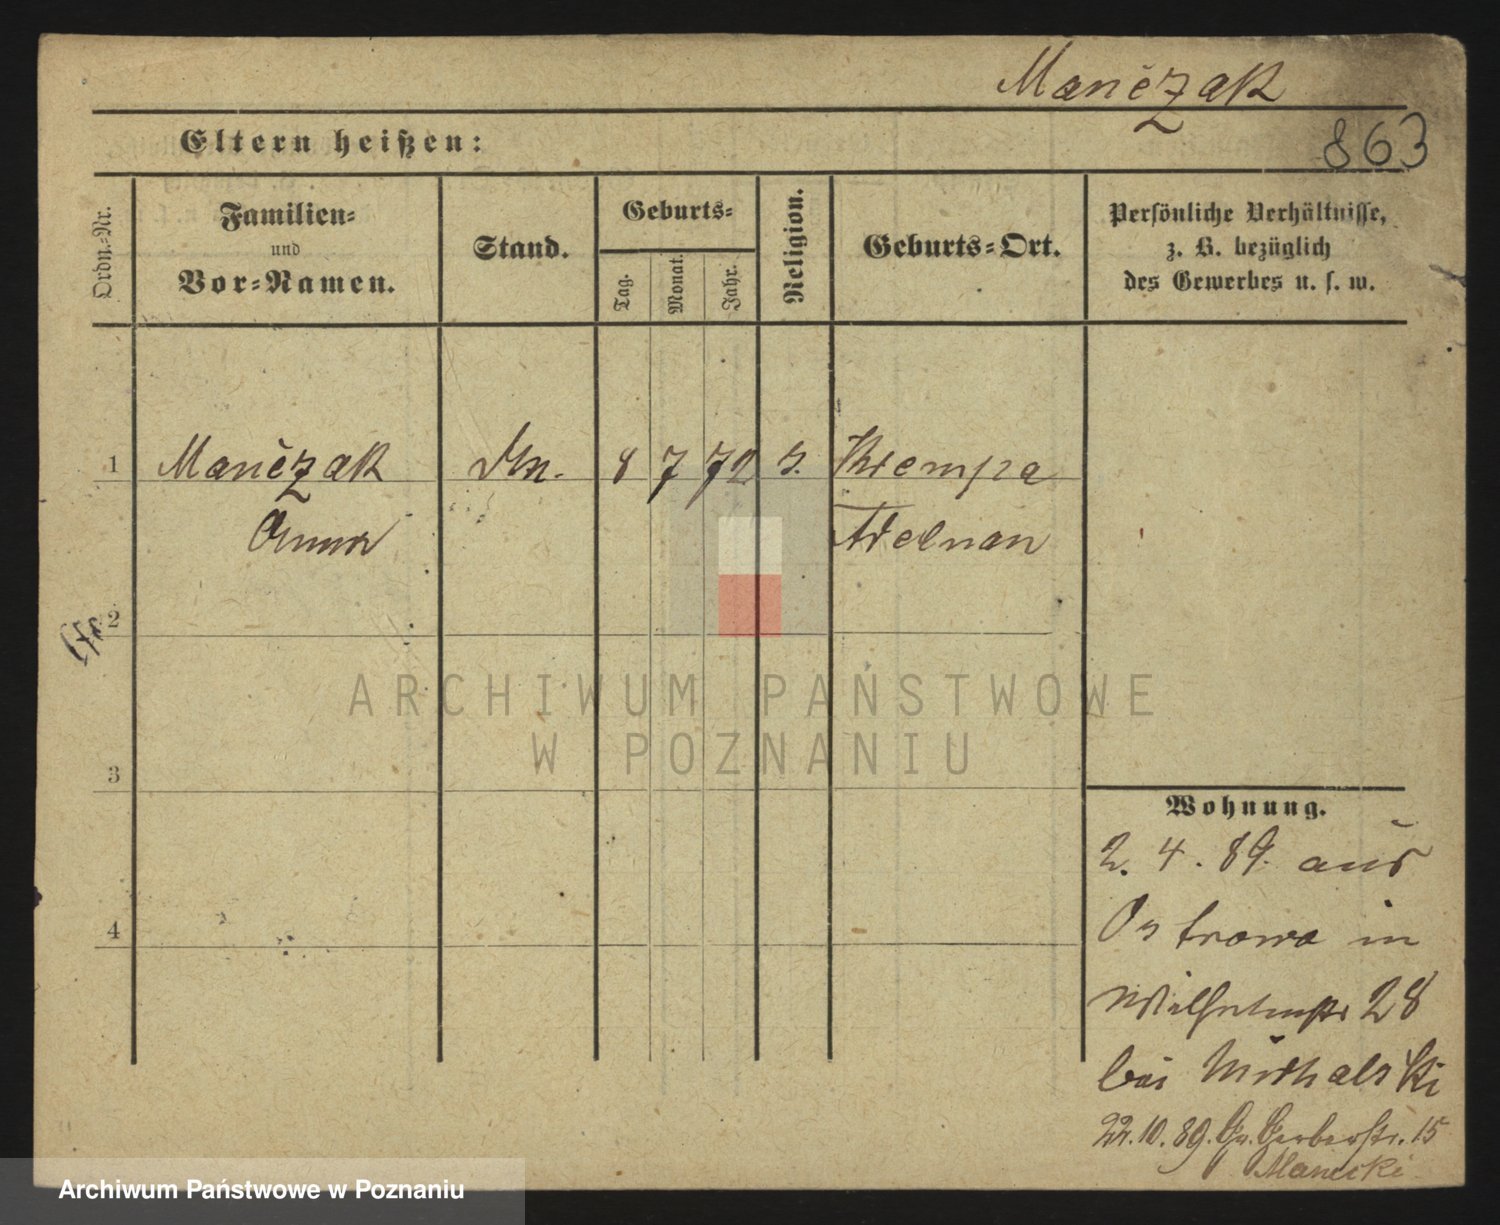 Manĕzak
863
Eltern heißen:
Ordn.-Nr.
Familien-
und
Vor-Namen.
Stand.
Geburts-
Tag.
Monat.
Jahr.
Religion.
Geburts-Ort.
Persönliche Verhältnisse,
z. B. bezüglich
des Gewerbes u. s. w.
1 Manĕzak 8 7 72 Krempa
Anna Adelnau
2
3
4
Wohnung.
2. 4. 89. aus
Ostrowo in
Wilhelmstr 28
bei Michalski
22.10.89. Gr. Gerberstr. 15
Manecki
ARCHIWUM PAŃSTWOWE
W POZNANIU
Archiwum Państwowe w Poznaniu